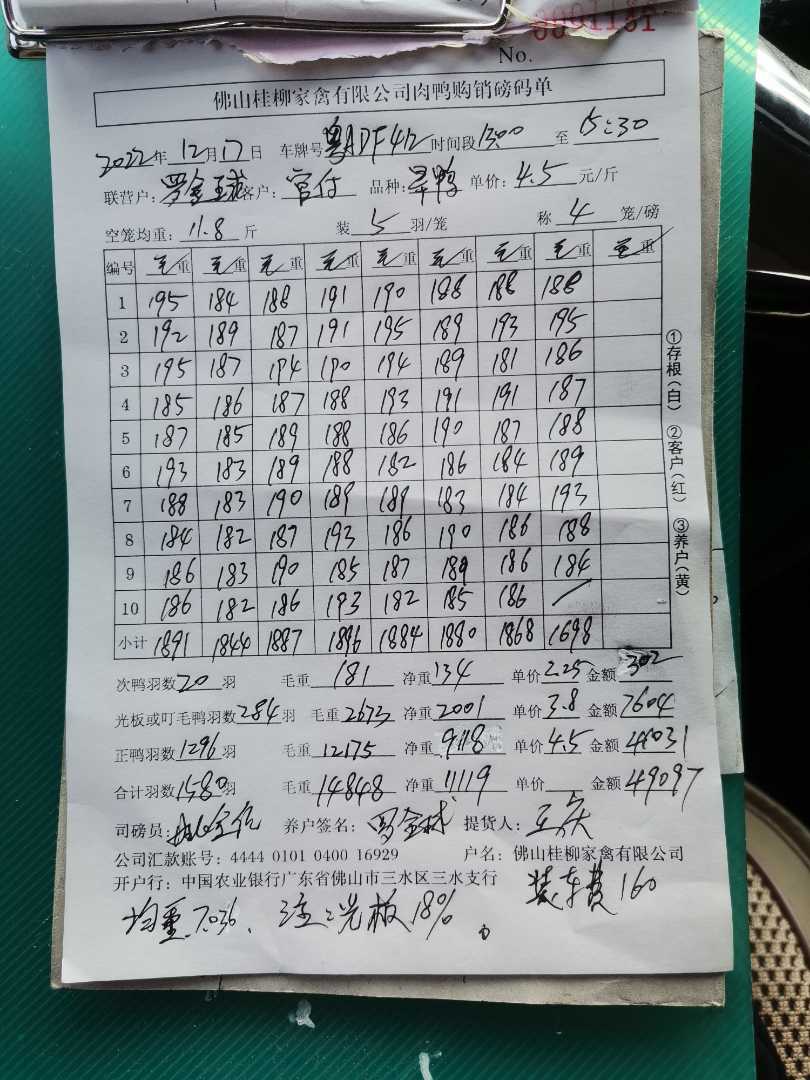 No. 0001181
佛山桂柳家禽有限公司肉鸭购销磅码单
2022年 12月17日 车牌号 粤ADF412 时间段 13:00 至 15:30
联营户: 罗金球 客户: 官付 品种: 旱鸭 单价: 4.5 元/斤
空笼均重: 11.8 斤 装 5 羽/笼 称 4 笼/磅
编号 毛重 毛重 毛重 毛重 毛重 毛重 毛重 毛重 毛重
1 195 184 188 191 190 188 188 188
2 192 189 187 191 195 189 193 195
3 195 187 194 190 194 189 181 186
4 185 186 187 188 193 191 191 187
5 187 185 189 188 186 190 187 188
6 193 183 189 188 182 186 184 189
7 188 183 190 189 189 183 184 193
8 184 182 187 193 186 190 186 188
9 186 183 190 185 187 189 186 184
10 186 182 186 193 182 185 186 /
小计 1891 1844 1887 1896 1884 1880 1868 1698
次鸭羽数 20 羽 毛重 181 净重 134 单价 2.25 金额 302
光板或叮毛鸭羽数 284 羽 毛重 2673 净重 2001 单价 3.8 金额 7604
正鸭羽数 1296 羽 毛重 12175 净重 9118 单价 4.5 金额 41031
合计羽数 1580 羽 毛重 14848 净重 11119 单价 金额 49097
司磅员: 养户签名: 罗金球 提货人: 王庆
公司汇款账号: 4444 0101 0400 16929 户名: 佛山桂柳家禽有限公司
开户行: 中国农业银行广东省佛山市三水区三水支行 装车费160
均重7.036、注:光板18%。
①存根(白) ②客户(红) ③养户(黄)